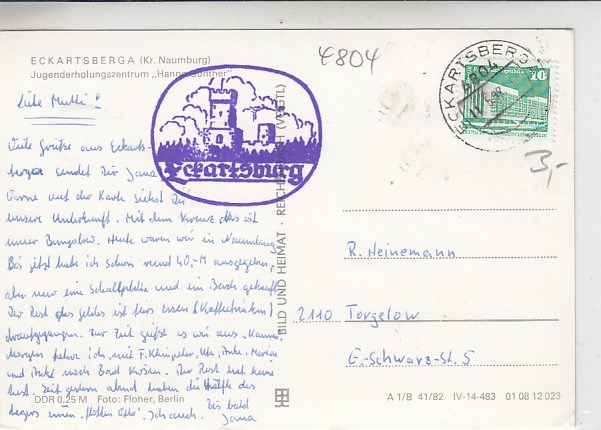 ECKARTSBERGA (Kr. Naumburg)
Jugenderholungszentrum „Hanno Günther"
4804
Liebe Mutti!
Viele Grüße aus Eckarts-
berga sendet Dir Jana
Vorne auf der Karte siehst Du
unsere Unterkunft. Mit dem Kreuz das ist
unser Bungalow. Heute waren wir in Naumburg
Bis jetzt habe ich schon rund 40,-M ausgegeben,
aber nur eine Schallplatte und ein Buch gekauft
Der Rest des Geldes ist fürs Essen (Kaffeetrinken)
draufgegangen. Zur Zeit gießt es wie aus Kannen.
Morgen fahre ich mit F. Klingeler, Ute, Anke, Marion
und nach Bad Kösen. Der Rest hat keine
Lust. Seit gestern abend haben die Hälfte des
Lagers einen „flotten Otto". Ich auch. Bis bald
Jana
Eckartsburg
BILD UND HEIMAT · REICHENBACH (VOGTL)
ECKARTSBERGA
4804
R. Heinemann
2110 Torgelow
E.-Schwarz-St. 5
3,-
DDR 0,25 M Foto: Floher, Berlin
A 1/B 41/82 IV-14-483 01 08 12 023